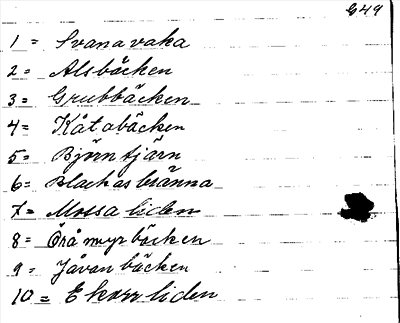 649
1 = Svanavaka
2 = Alsbäcken
3 = Grubbbäcken
4 = Kåtabäcken
5 = Björntjärn
6 = Blackasbränna
7 = Mossaliden
8 = Öråmyrbäcken
9 = Javanbäcken
10 = Ekorrliden